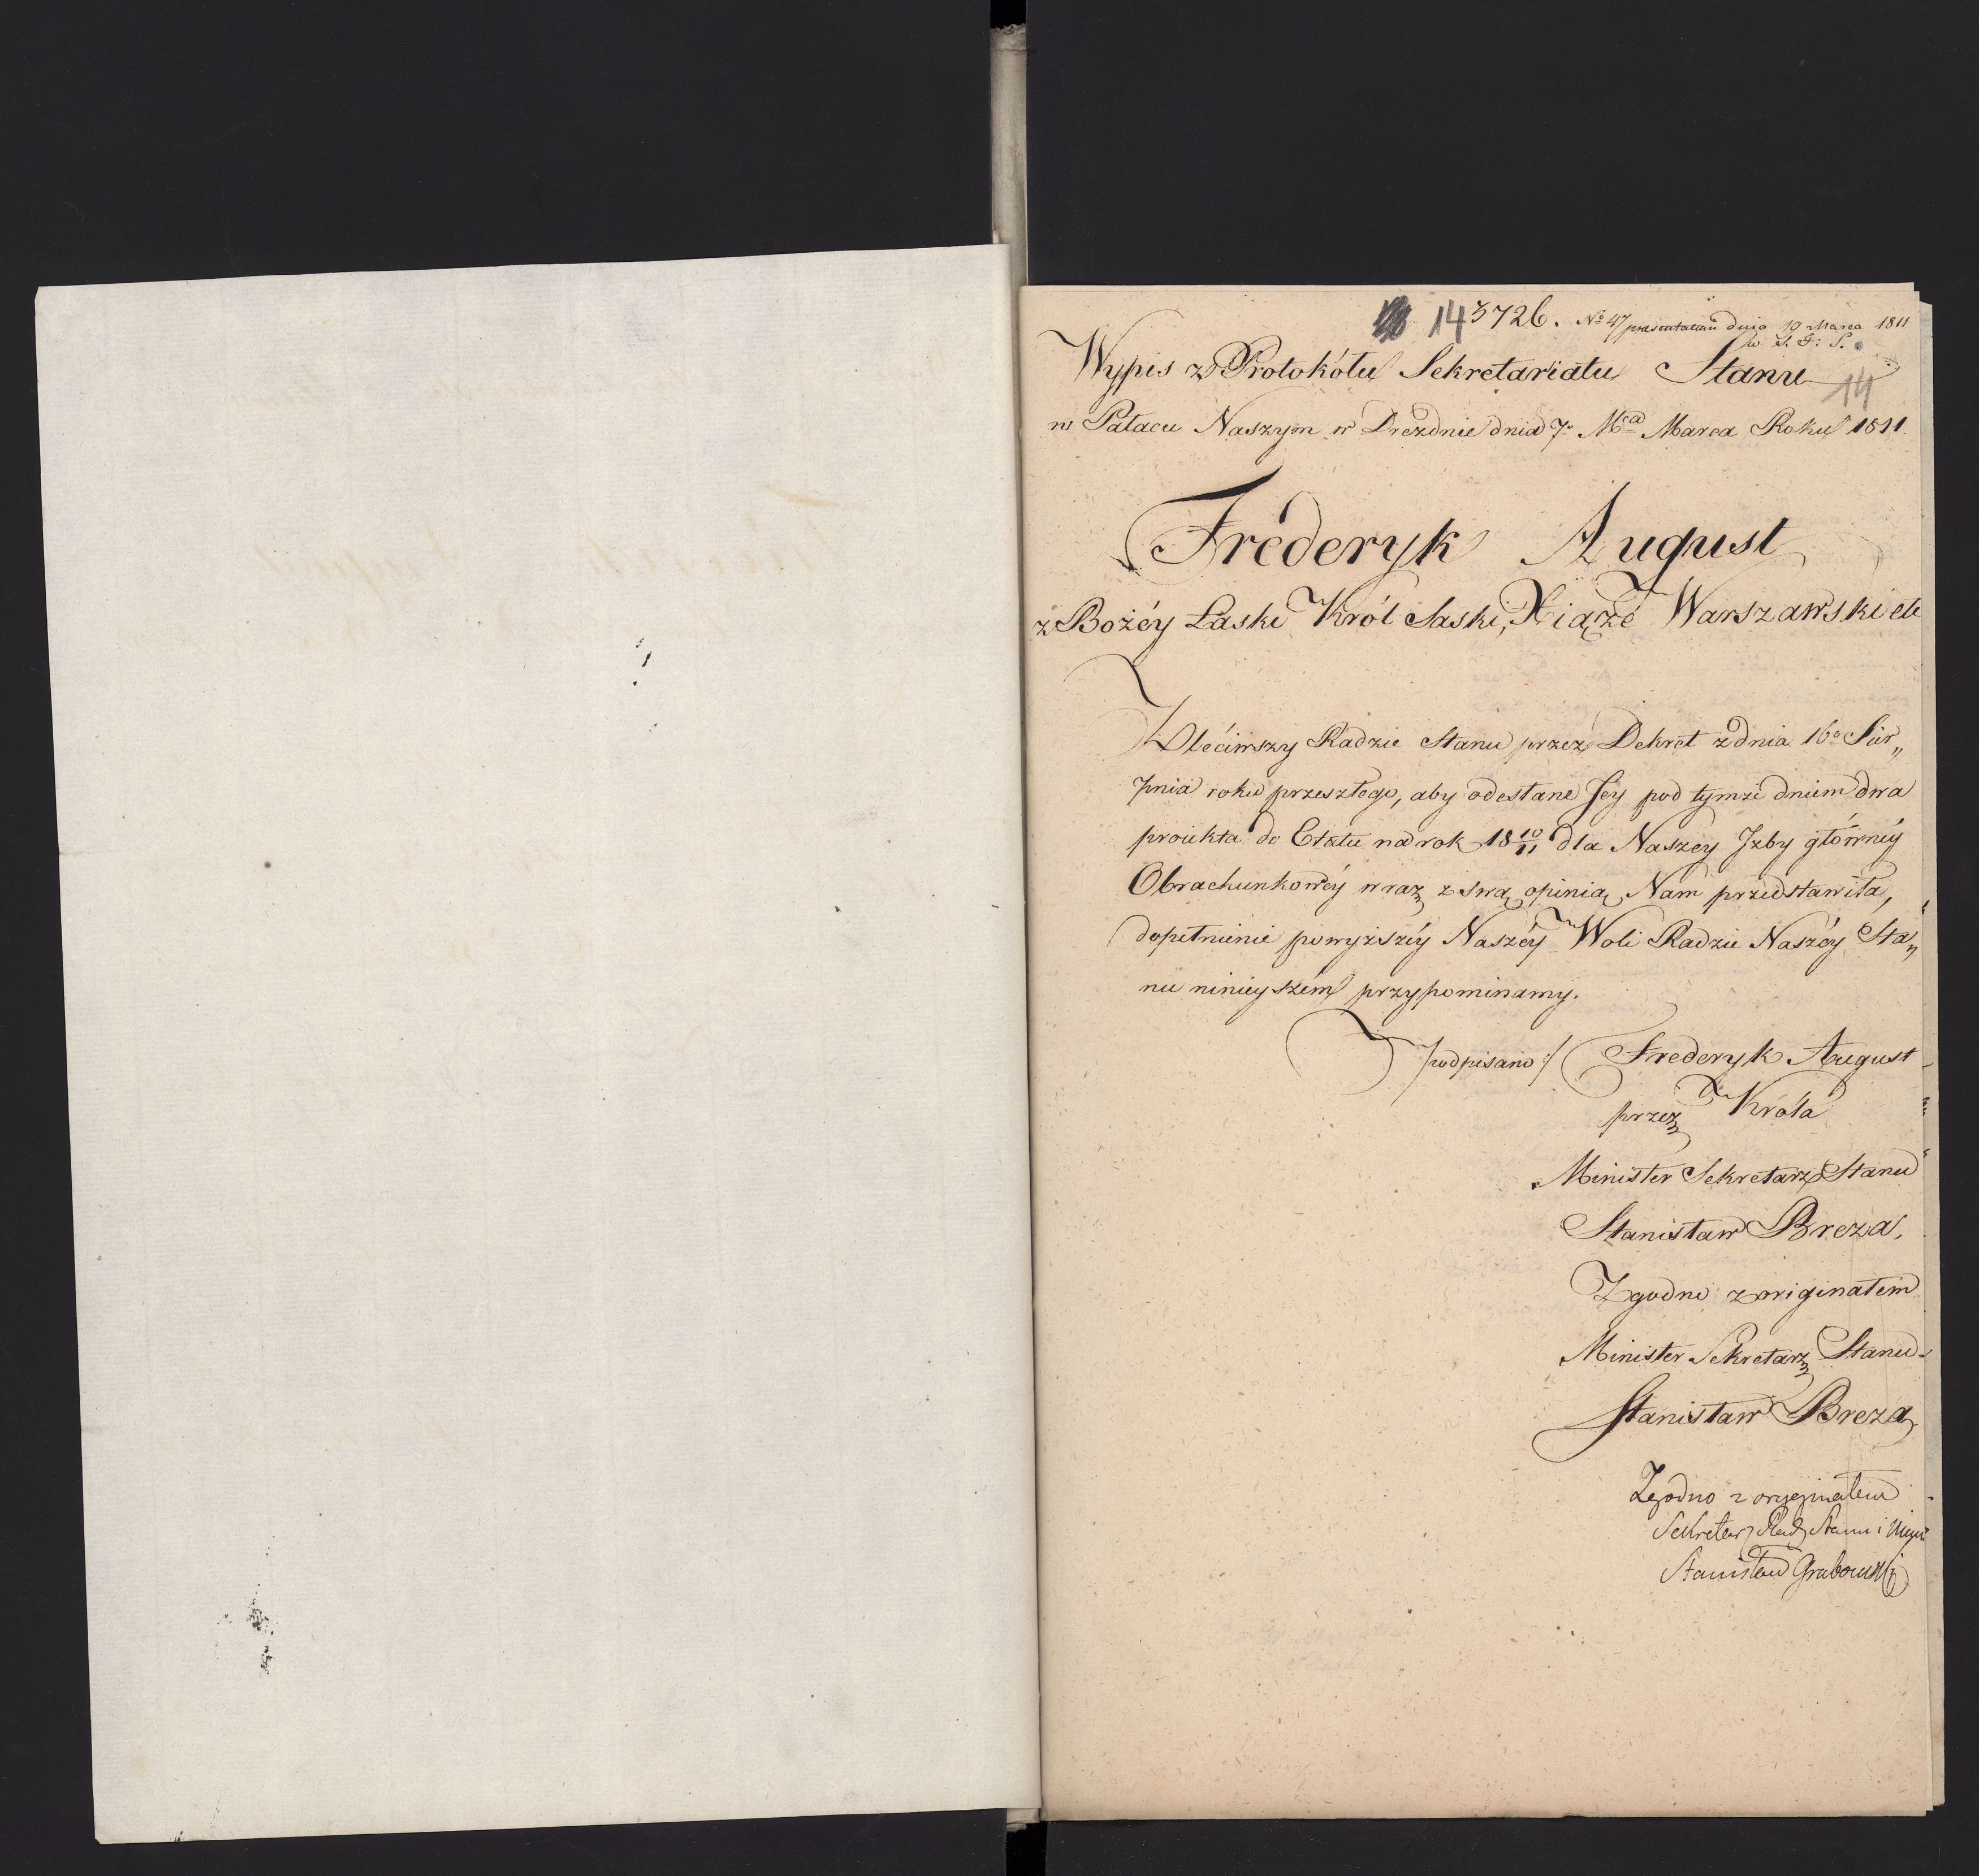 14 3726. No 47 praesentatum dnia 19 Marca 1811
Wypis z Protokółu Sekretariatu Stanu
14
w Pałacu Naszym w Dreźnie dnia 7o Mca Marca Roku 1811
Fréderyk August
z Bożéy Łaski Król Saski, Xiąże Warszawski etc
Zleciwszy Radzie Stanu przez Dekret z dnia 16o Sier„
pnia roku przeszłego, aby odesłane Jey pod tymże dniem dwa
proiekta do Etatu na rok 18 10/11 dla Naszey Jzby główney
Obrachunkowéy wraz z swą opinią Nam przedstawiła,
dopełnienie powyższéy Naszéy Woli Radzie Naszéy Sta„
nu ninieyszém przypominamy.
podpisano :/ Frederyk August
przez Króla
Minister Sekretarz Stanu
Stanisław Breza,
Zgodno z originałem
Minister Sekretarz Stanu
Stanisław Breza
Zgodno z oryginałem
Sekretarz Rady Stanu i
Stanisław Grabowski